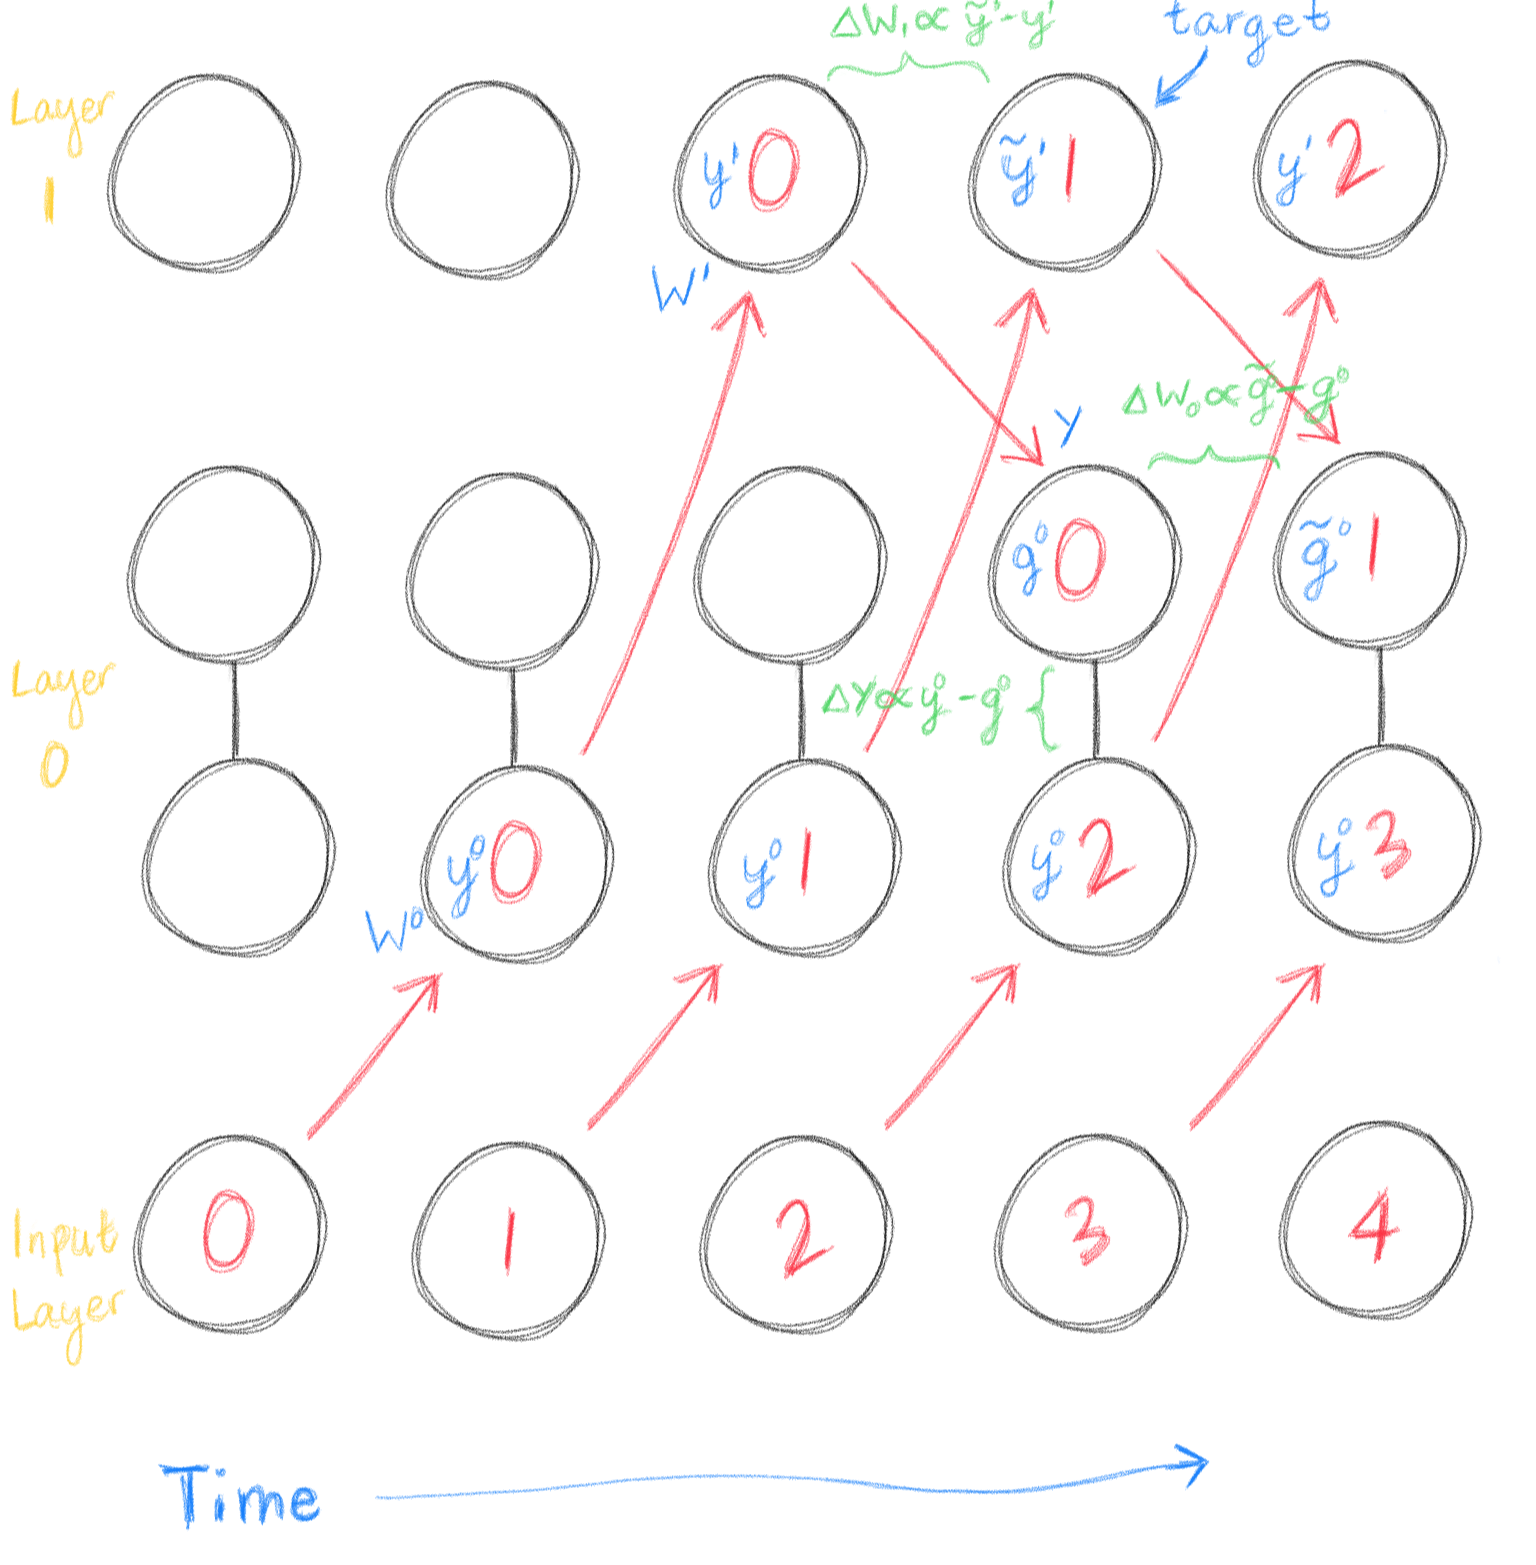 ΔW₁ ∝ ỹ¹ - y¹
target
Layer
1
y¹ 0
ỹ¹ 1
y¹ 2
W¹
ΔW₀ ∝ g̃⁰ - g⁰
Y
g⁰ 0
g̃⁰ 1
Layer
0
ΔY ∝ y⁰ - g⁰
y⁰ 0
y⁰ 1
y⁰ 2
y⁰ 3
W⁰
Input
Layer
0
1
2
3
4
Time